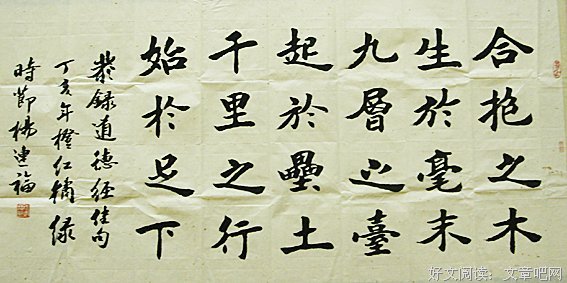 合抱之木
生於毫末
九層之臺
起於壘土
千里之行
始於足下
恭録道德經佳句
丁亥年橙紅橘緑
時節楊連福
好文阅读：文章吧网